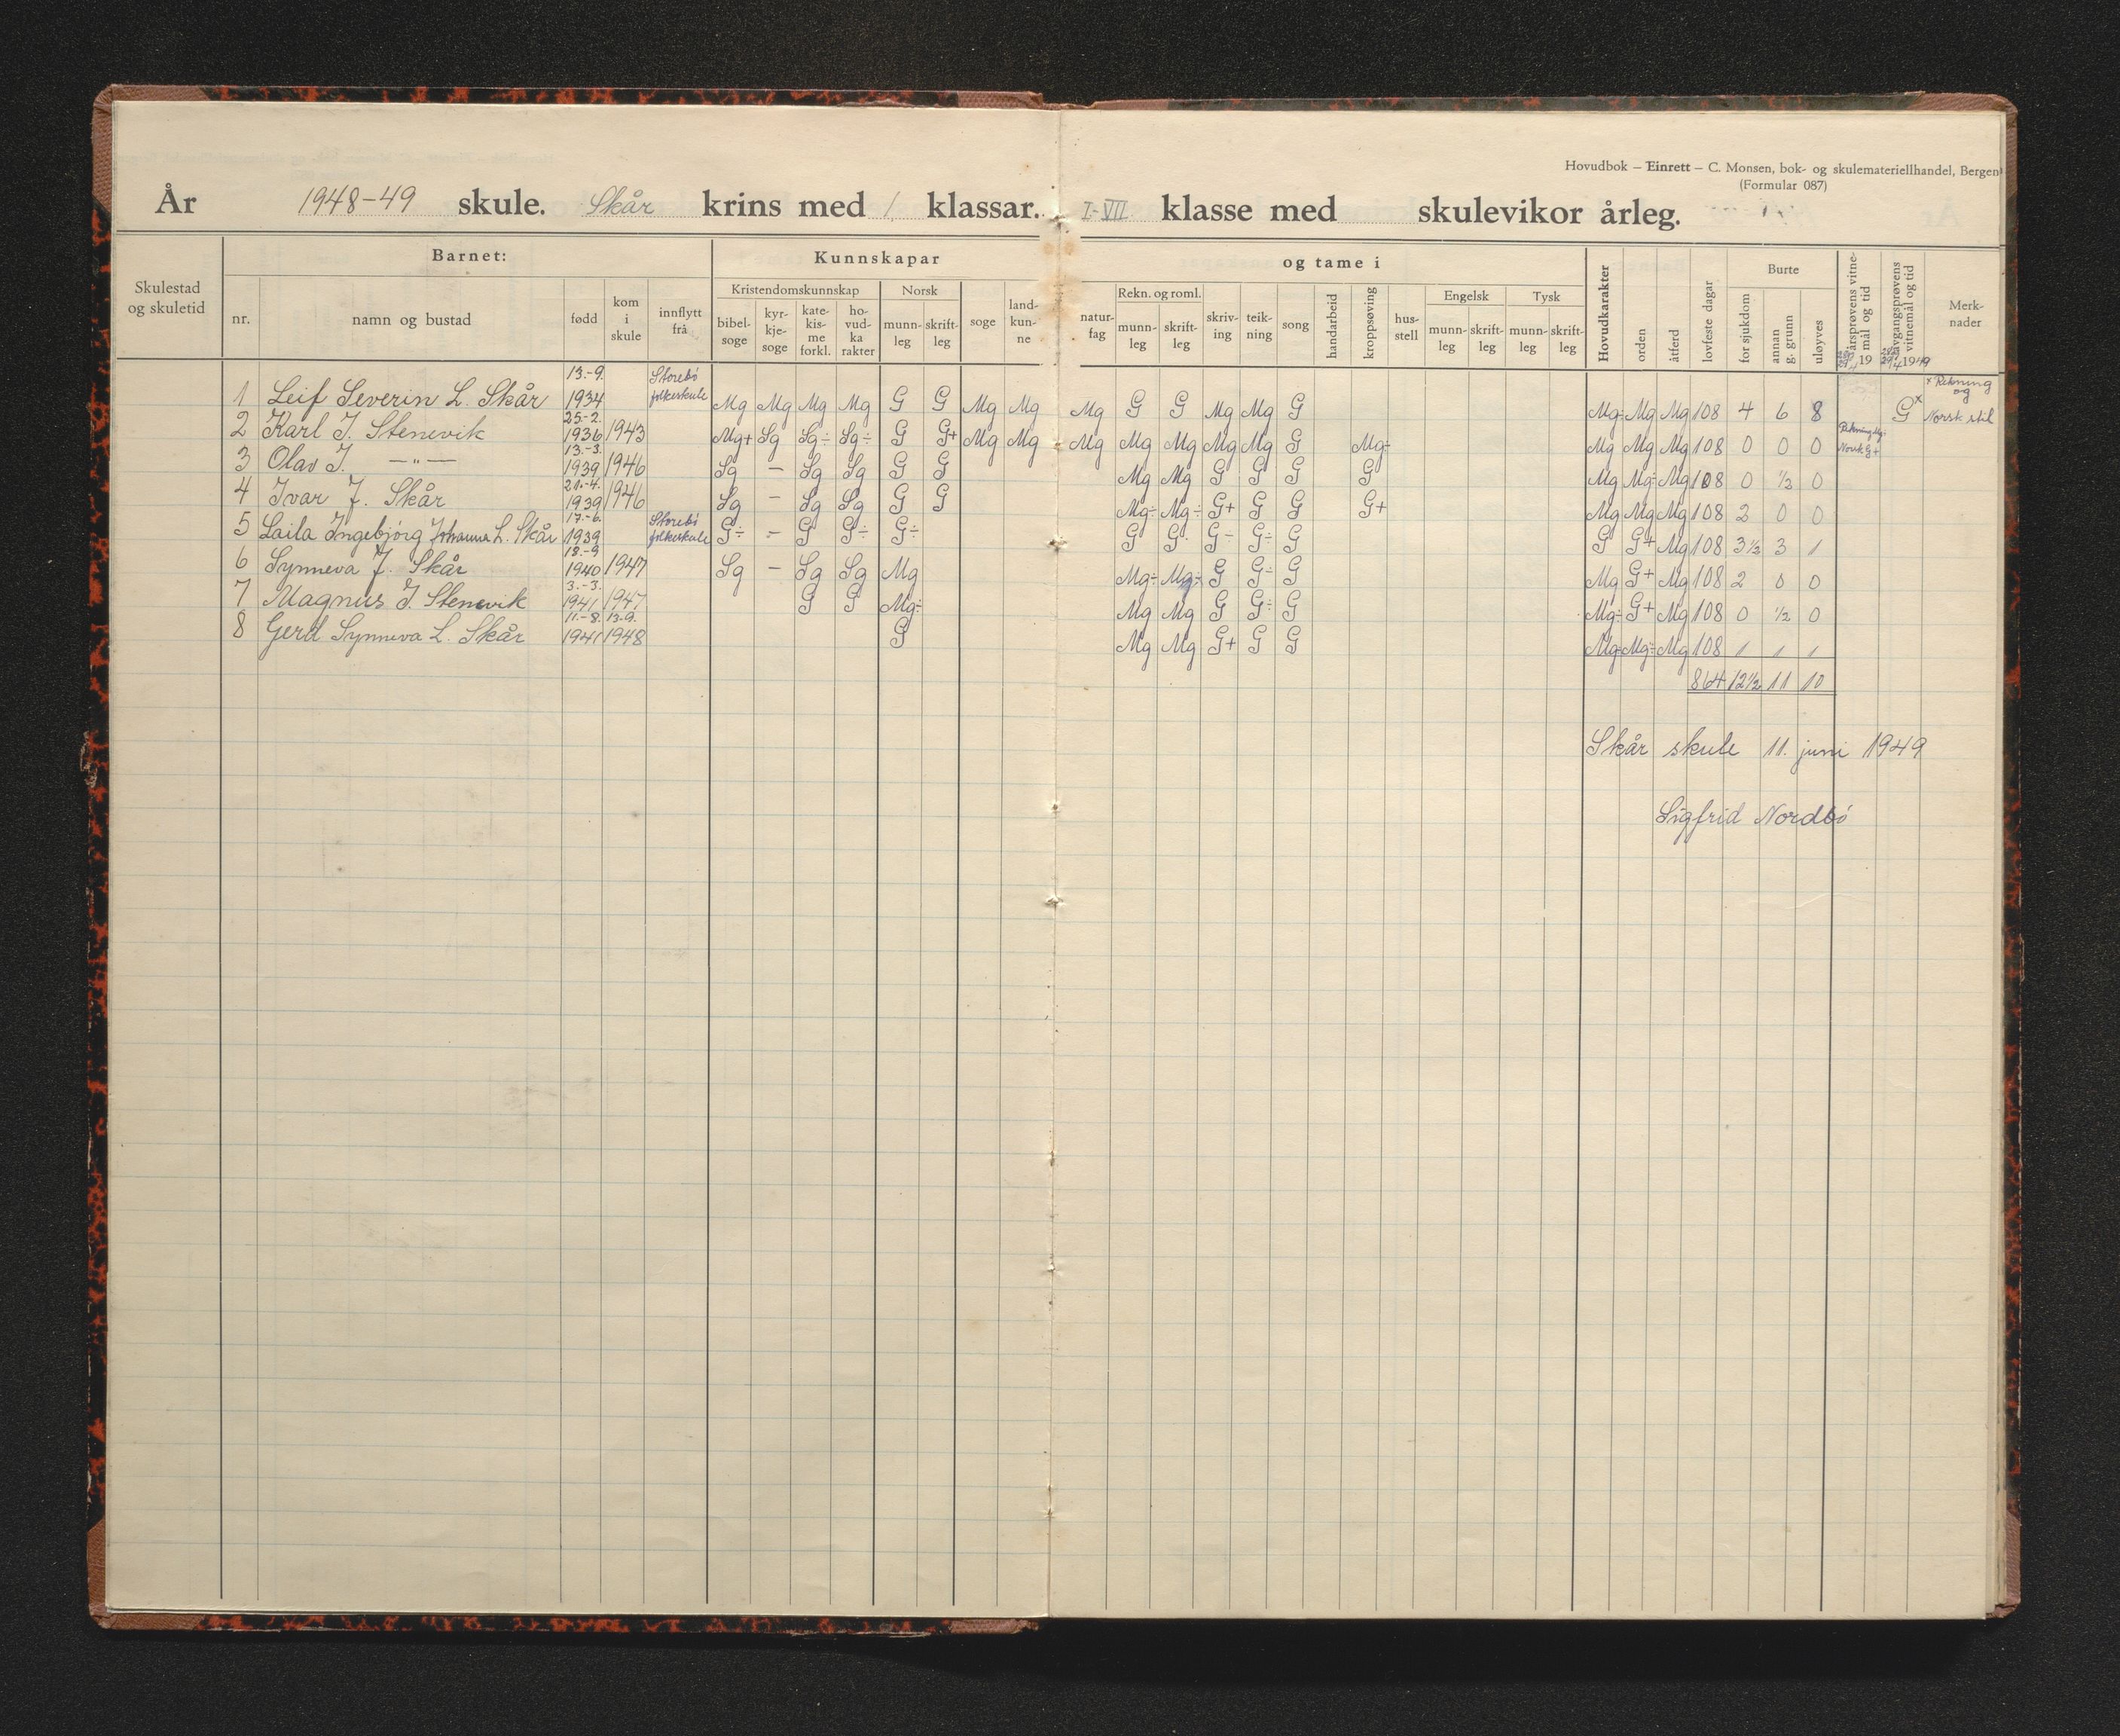 Hovudbok – Einrett – C. Monsen, bok- og skulemateriellhandel, Bergen
(Formular 087)
År 1948-49 skule. Skår krins med 1 klassar. I-VII klasse med skulevikor årleg.
Barnet: Kunnskapar og tame i
Skulestad og skuletid nr. namn og bustad fødd kom i skule innflytt frå Kristendomskunnskap bibel-soge kyr-kje-soge kate-kis-me forkl. ho-vud-ka rakter Norsk munn-leg skrift-leg soge land-kun-ne natur-fag Rekn. og roml. munn-leg skrift-leg skriv-ing teik-ning song handarbeid kroppsøving hus-stell Engelsk munn-leg skrift-leg Tysk munn-leg skrift-leg Hovudkarakter orden åtferd lovfeste dagar Burte for sjukdom annan g. grunn uløyves årsprøvens vitne-mål og tid 19 avgangsprøvens vitnemål og tid 1949 Merk-nader
1 Leif Severin L. Skår 13.-9. 1934 Storebö folkeskule Mg Mg Mg Mg G G Mg Mg Mg G G Mg Mg G Mg÷ Mg Mg 108 4 6 8 G x x Rekning og Norsk stil
2 Karl J. Stenevik 25-2. 1936 1943 Mg+ Sg Sg÷ Sg÷ G G+ Mg Mg Mg Mg Mg Mg Mg G Mg÷ Mg Mg Mg 108 0 0 0 Rekning Mg÷ Norsk G+
3 Olav J. —"— 13.-3. 1939 1946 Sg – Sg Sg G G Mg Mg G G G G Mg Mg÷ Mg 108 0 ½ 0
4 Ivar J. Skår 21.-4. 1939 1946 Sg – Sg Sg G G Mg÷ Mg÷ G+ G G G+ Mg Mg Mg 108 2 0 0
5 Laila Ingebjörg Johanna L. Skår 17.-6. 1939 Storebö folkeskule G÷ – G G÷ G÷ G G÷ G÷ G÷ G G G+ Mg 108 3½ 3 1
6 Synneva J. Skår 18.-9 1940 1947 Sg – Sg Sg Mg Mg÷ Mg÷ G G÷ G Mg G+ Mg 108 2 0 0
7 Magnus J. Stenevik 3.-3. 1941 1947 G G Mg÷ Mg Mg G G÷ G Mg÷ G+ Mg 108 0 ½ 0
8 Gerd Synneva L. Skår 11.-8. 1941 13-9. 1948 G Mg Mg G+ G G Mg÷ Mg÷ Mg 108 1 1 1
864 12½ 11 10
Skår skule 11. juni 1949
Sigfrid Nordbö